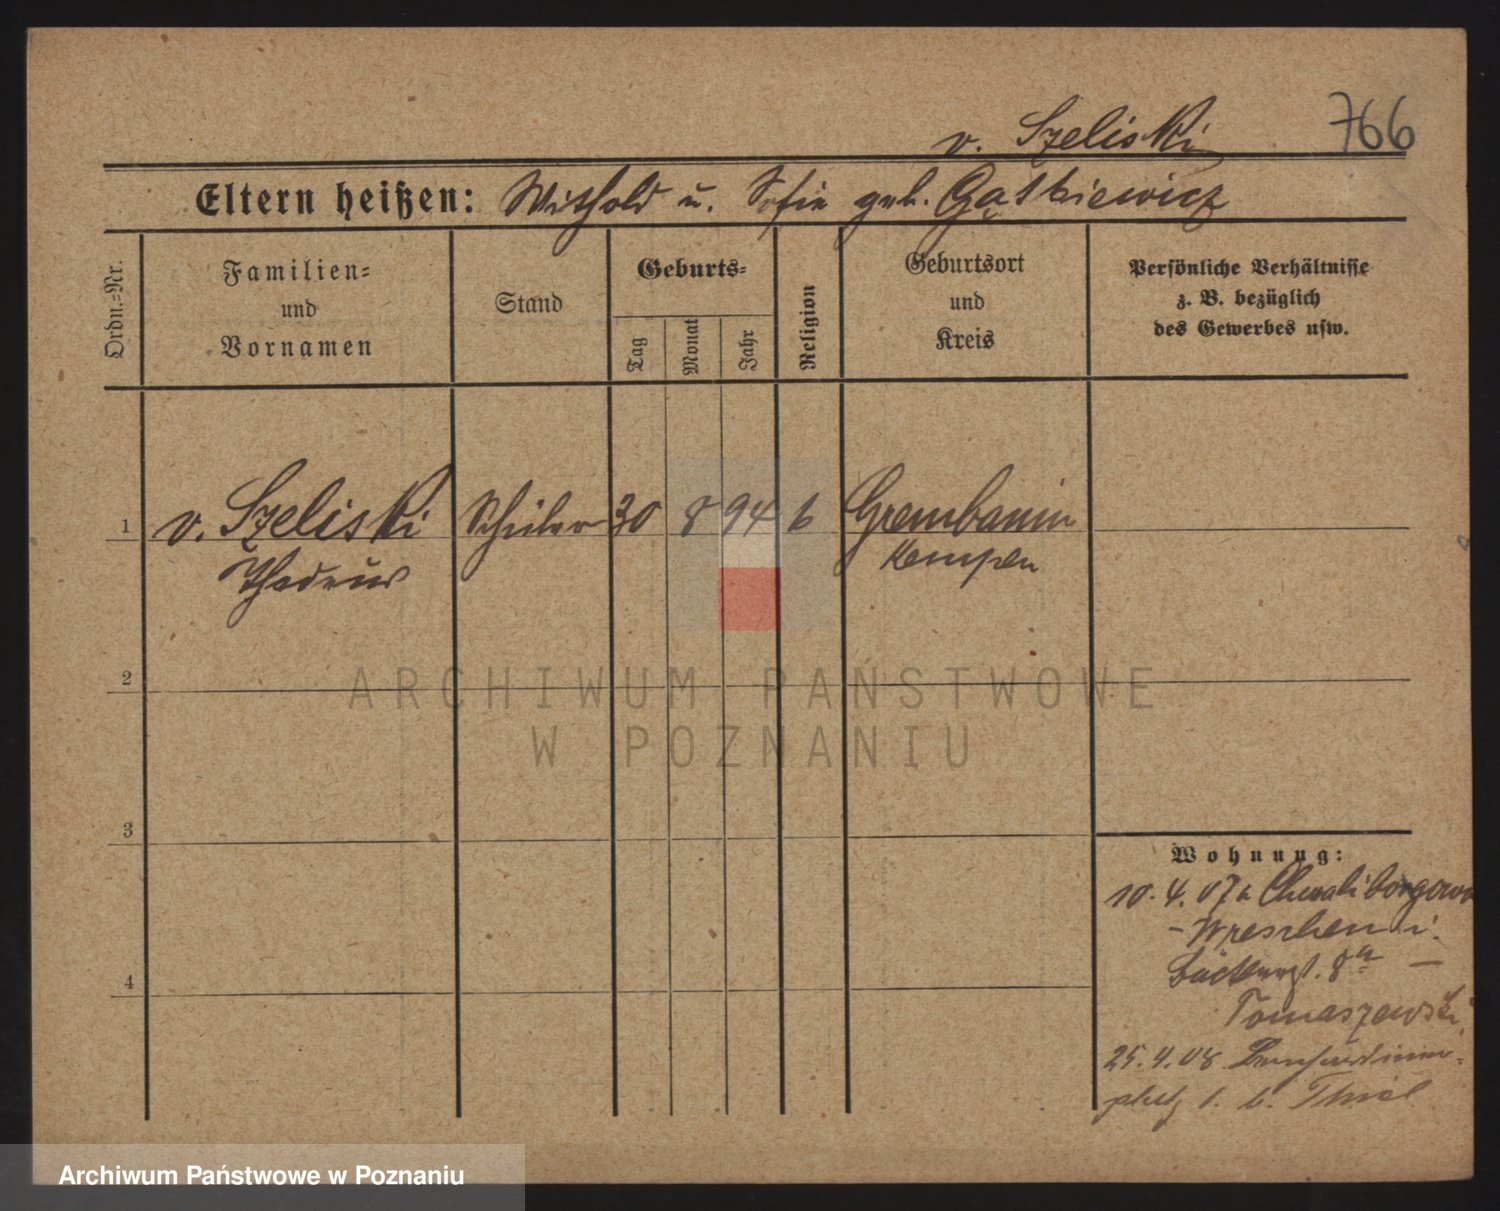 v. Szeliski 766
Eltern heißen: Withold u. Sofie geb. Gątkiewicz
Ordn.=Nr.
Familien=
und
Vornamen
Stand
Geburts=
Tag
Monat
Jahr
Religion
Geburtsort
und
Kreis
Persönliche Verhältnisse
z. B. bezüglich
des Gewerbes usw.
1 v. Szeliski Schüler 30 8 94 k Grembanin
Thadeus Kempen
2
ARCHIWUM PAŃSTWOWE
W POZNANIU
3
Wohnung:
10. 4. 07
Wreschen i.
Bäckerst. 8a —
4
Tomaszewski
25.4.08. Bernhardiner=
platz 1. b. Thiel
Archiwum Państwowe w Poznaniu